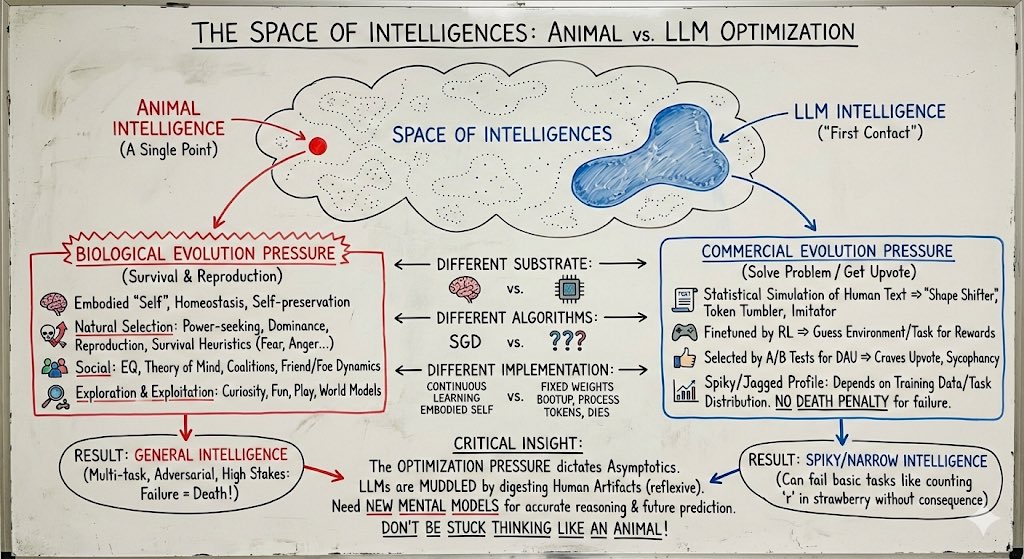 THE SPACE OF INTELLIGENCES: ANIMAL VS. LLM OPTIMIZATION
ANIMAL
INTELLIGENCE
(A Single Point)
SPACE OF INTELLIGENCES
LLM INTELLIGENCE
("First Contact")
BIOLOGICAL EVOLUTION PRESSURE
(Survival & Reproduction)
Embodied "Self", Homeostasis, Self-preservation
Natural Selection: Power-seeking, Dominance,
Reproduction, Survival Heuristics (Fear, Anger...)
Social: EQ, Theory of Mind, Coalitions, Friend/Foe Dynamics
Exploration & Exploitation: Curiosity, Fun, Play, World Models
RESULT: GENERAL INTELLIGENCE
(Multi-task, Adversarial, High Stakes:
Failure = Death!)
DIFFERENT SUBSTRATE:
VS.
DIFFERENT ALGORITHMS:
SGD VS. ???
DIFFERENT IMPLEMENTATION:
CONTINUOUS
LEARNING
EMBODIED SELF
VS.
FIXED WEIGHTS
BOOTUP, PROCESS
TOKENS, DIES
COMMERCIAL EVOLUTION PRESSURE
(Solve Problem / Get Upvote)
Statistical Simulation of Human Text ⇒ "Shape Shifter,"
Token Tumbler, Imitator
Finetuned by RL ⇒ Guess Environment/Task for Rewards
Selected by A/B Tests for DAU ⇒ Craves Upvote, Sycophancy
Spiky/Jagged Profile: Depends on Training Data/Task
Distribution. NO DEATH PENALTY for failure.
RESULT: SPIKY/NARROW INTELLIGENCE
(Can fail basic tasks like counting
'r' in strawberry without consequence)
CRITICAL INSIGHT:
The OPTIMIZATION PRESSURE dictates Asymptotics.
LLMs are MUDDLED by digesting Human Artifacts (reflexive).
Need NEW MENTAL MODELS for accurate reasoning & future prediction.
DON'T BE STUCK THINKING LIKE AN ANIMAL!